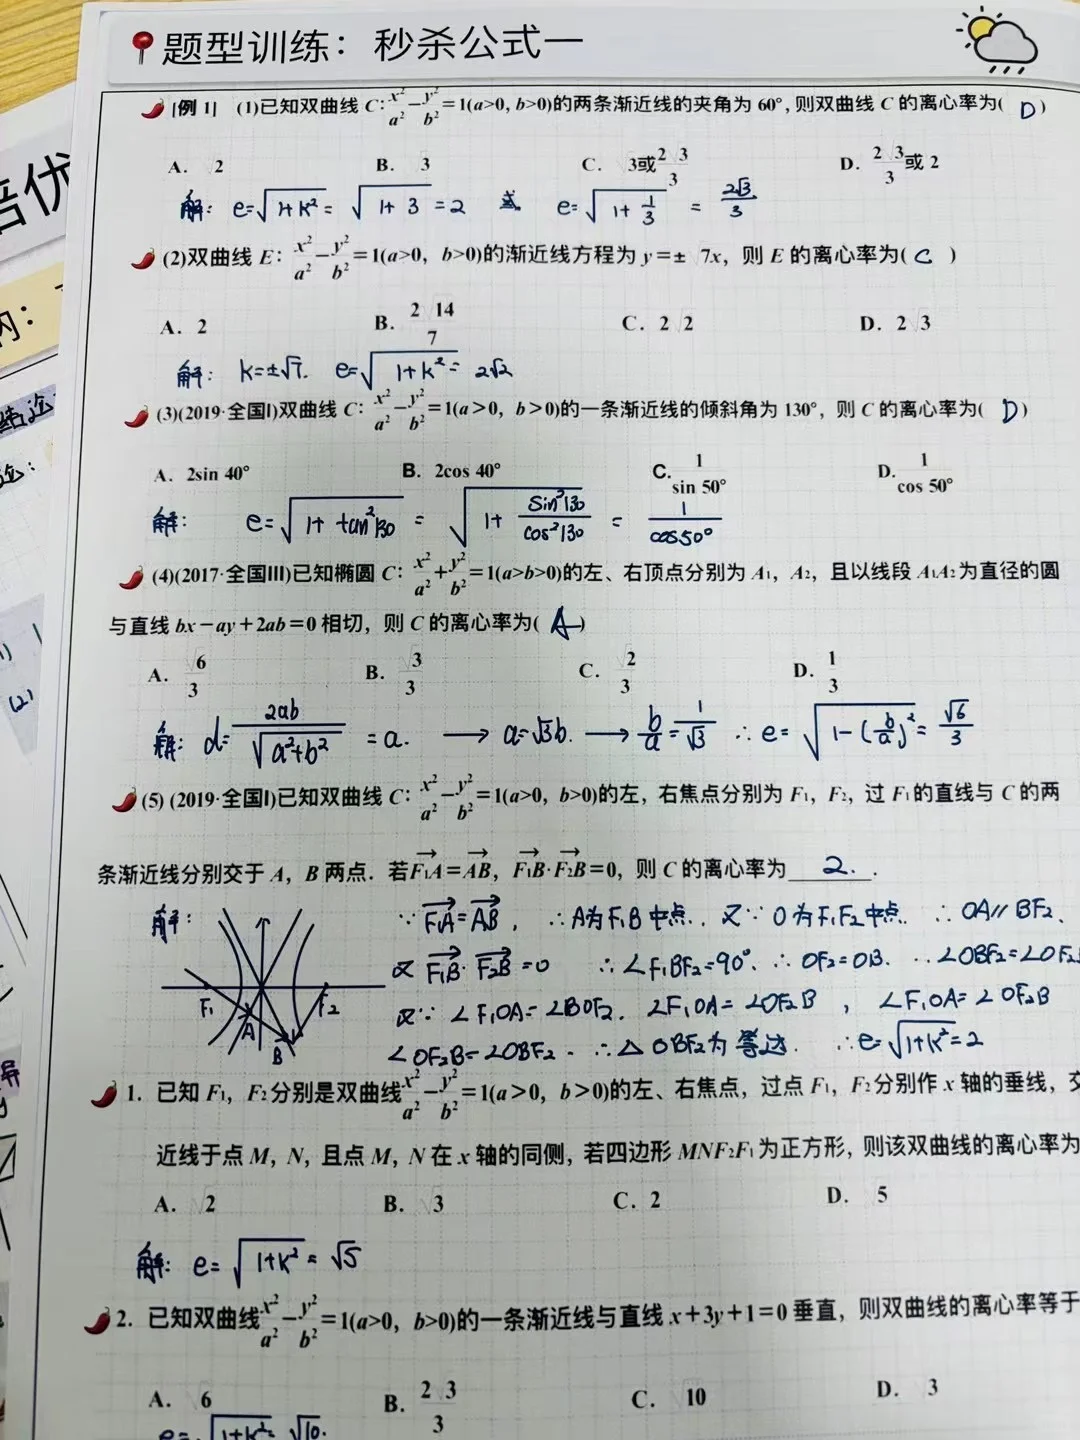 题型训练：秒杀公式一
[例1] (1)已知双曲线 C：x²/a²−y²/b²=1(a>0, b>0)的两条渐近线的夹角为 60°, 则双曲线 C 的离心率为( D )
A. √2 B. √3 C. √3或2√3/3 D. 2√3/3或 2
解: e=√(1+k²)=√(1+3)=2 或 e=√(1+1/3) = 2√3/3
(2)双曲线 E：x²/a²−y²/b²=1(a>0，b>0)的渐近线方程为 y=±√7x，则 E 的离心率为( C )
A. 2 B. 2√14/7 C. 2√2 D. 2√3
解: k=±√7. e=√(1+k²)=2√2
(3)(2019·全国Ⅰ)双曲线 C：x²/a²−y²/b²=1(a>0，b>0)的一条渐近线的倾斜角为 130°，则 C 的离心率为( D )
A. 2sin 40° B. 2cos 40° C. 1/sin 50° D. 1/cos 50°
解: e=√(1+tan²130) = √(1+sin²130/cos²130) = 1/cos50°
(4)(2017·全国Ⅲ)已知椭圆 C：x²/a²+y²/b²=1(a>b>0)的左、右顶点分别为 A₁，A₂，且以线段 A₁A₂为直径的圆
与直线 bx−ay+2ab=0 相切，则 C 的离心率为( A )
A. √6/3 B. √3/3 C. √2/3 D. 1/3
解: d=2ab/√(a²+b²)=a. → a=√3b. → b/a=1/√3 ∴e=√(1−(b/a)²)=√6/3
(5) (2019·全国Ⅰ)已知双曲线 C：x²/a²−y²/b²=1(a>0，b>0)的左，右焦点分别为 F₁，F₂，过 F₁的直线与 C 的两
条渐近线分别交于 A，B 两点．若F₁A=AB，F₁B·F₂B=0，则 C 的离心率为 2. .
解: ∵F₁A=AB, ∴A为F₁B中点. 又∵O为F₁F₂中点. ∴OA∥BF₂.
又F₁B·F₂B=0 ∴∠F₁BF₂=90°. ∴OF₂=OB. ∴∠OBF₂=∠OF₂B
又∵∠F₁OA=∠BOF₂. ∠F₁OA=∠OF₂B, ∠F₁OA=∠OF₂B
∠OF₂B=∠OBF₂. ∴△OBF₂为等边. ∴e=√(1+k²)=2
F₁ F₂
A
B
1. 已知 F₁，F₂分别是双曲线x²/a²−y²/b²=1(a>0，b>0)的左、右焦点，过点 F₁，F₂分别作 x 轴的垂线，交
近线于点 M，N，且点 M，N 在 x 轴的同侧，若四边形 MNF₂F₁为正方形，则该双曲线的离心率为
A. √2 B. √3 C. 2 D. √5
解: e=√(1+k²)=√5
2. 已知双曲线x²/a²−y²/b²=1(a>0，b>0)的一条渐近线与直线 x+3y+1=0 垂直，则双曲线的离心率等于
A. √6 B. 2√3/3 C. √10 D. √3
e=√(1+k²)=√10.